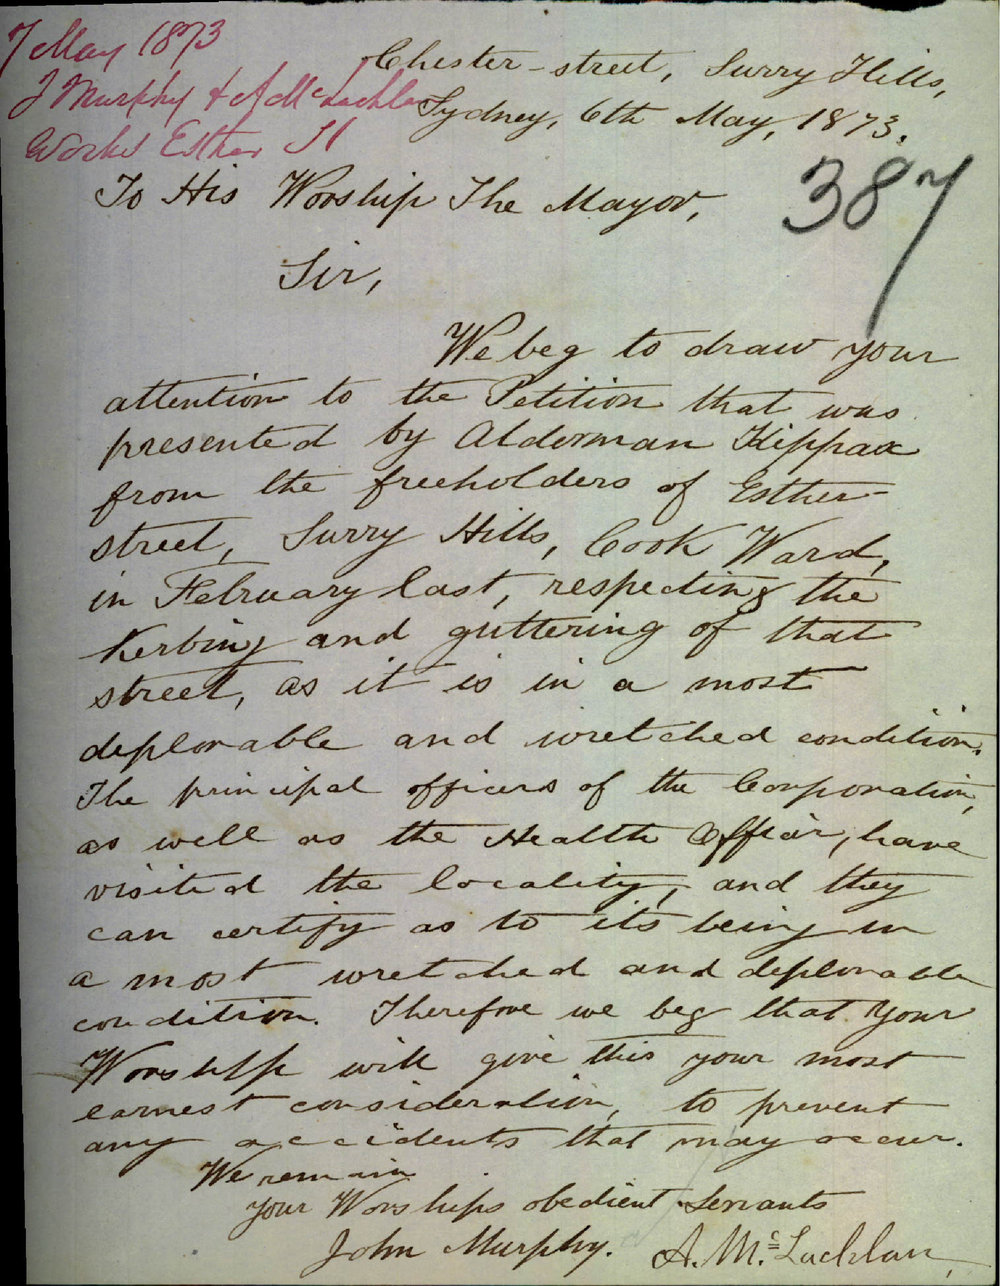 7 May 1873
J Murphy & A McLachlan
Works Esther St
Chester-street, Surry Hills,
Sydney, 6th May, 1873.
387
To His Worship The Mayor,
Sir,
We beg to draw your
attention to the Petition that was
presented by Alderman Kippax
from the freeholders of Esther-
street, Surry Hills, Cook Ward,
in February last, respecting the
Kerbing and guttering of that
street, as it is in a most
deplorable and wretched condition.
The principal officers of the Corporation,
as well as the Health Officer, have
visited the locality, and they
can certify as to its being in
a most wretched and deplorable
condition. Therefore we beg that your
Worship will give this your most
earnest consideration, to prevent
any accidents that may occur.
We remain
your Worships obedient Servants
John Murphy. A. Mc.Lachlan,